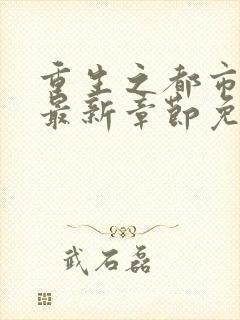 重生之都市
最新章节免
武石磊